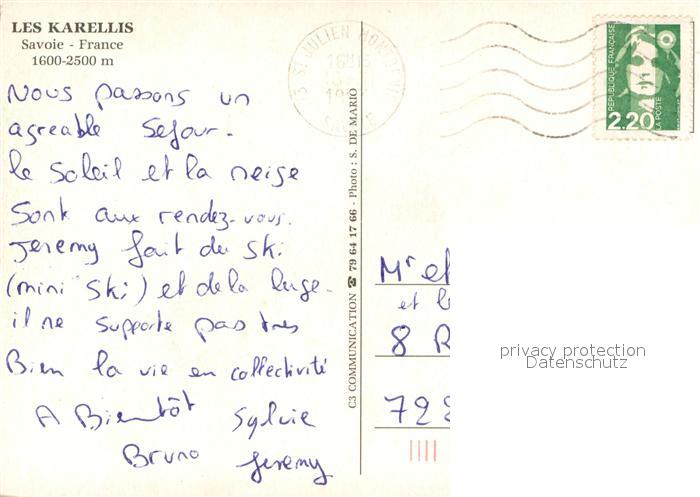 LES KARELLIS
Savoie - France
1600-2500 m
Nous passons un
agreable Sejour.
le Soleil et la neige
Sont aux rendez-vous.
Jeremy fait du Ski
(mini Ski) et de la luge.
il ne supporte pas tres
Bien la vie en collectivité
A Bientôt Sylvie
Bruno Jeremy
C3 COMMUNICATION ☎ 79 64 17 66 - Photo : S. DE MARIO
73 ST JULIEN MONTDENIS
SAVOIE
REPUBLIQUE FRANÇAISE
LA POSTE
2.20
Mr et
et
8 R
72
privacy protection
Datenschutz